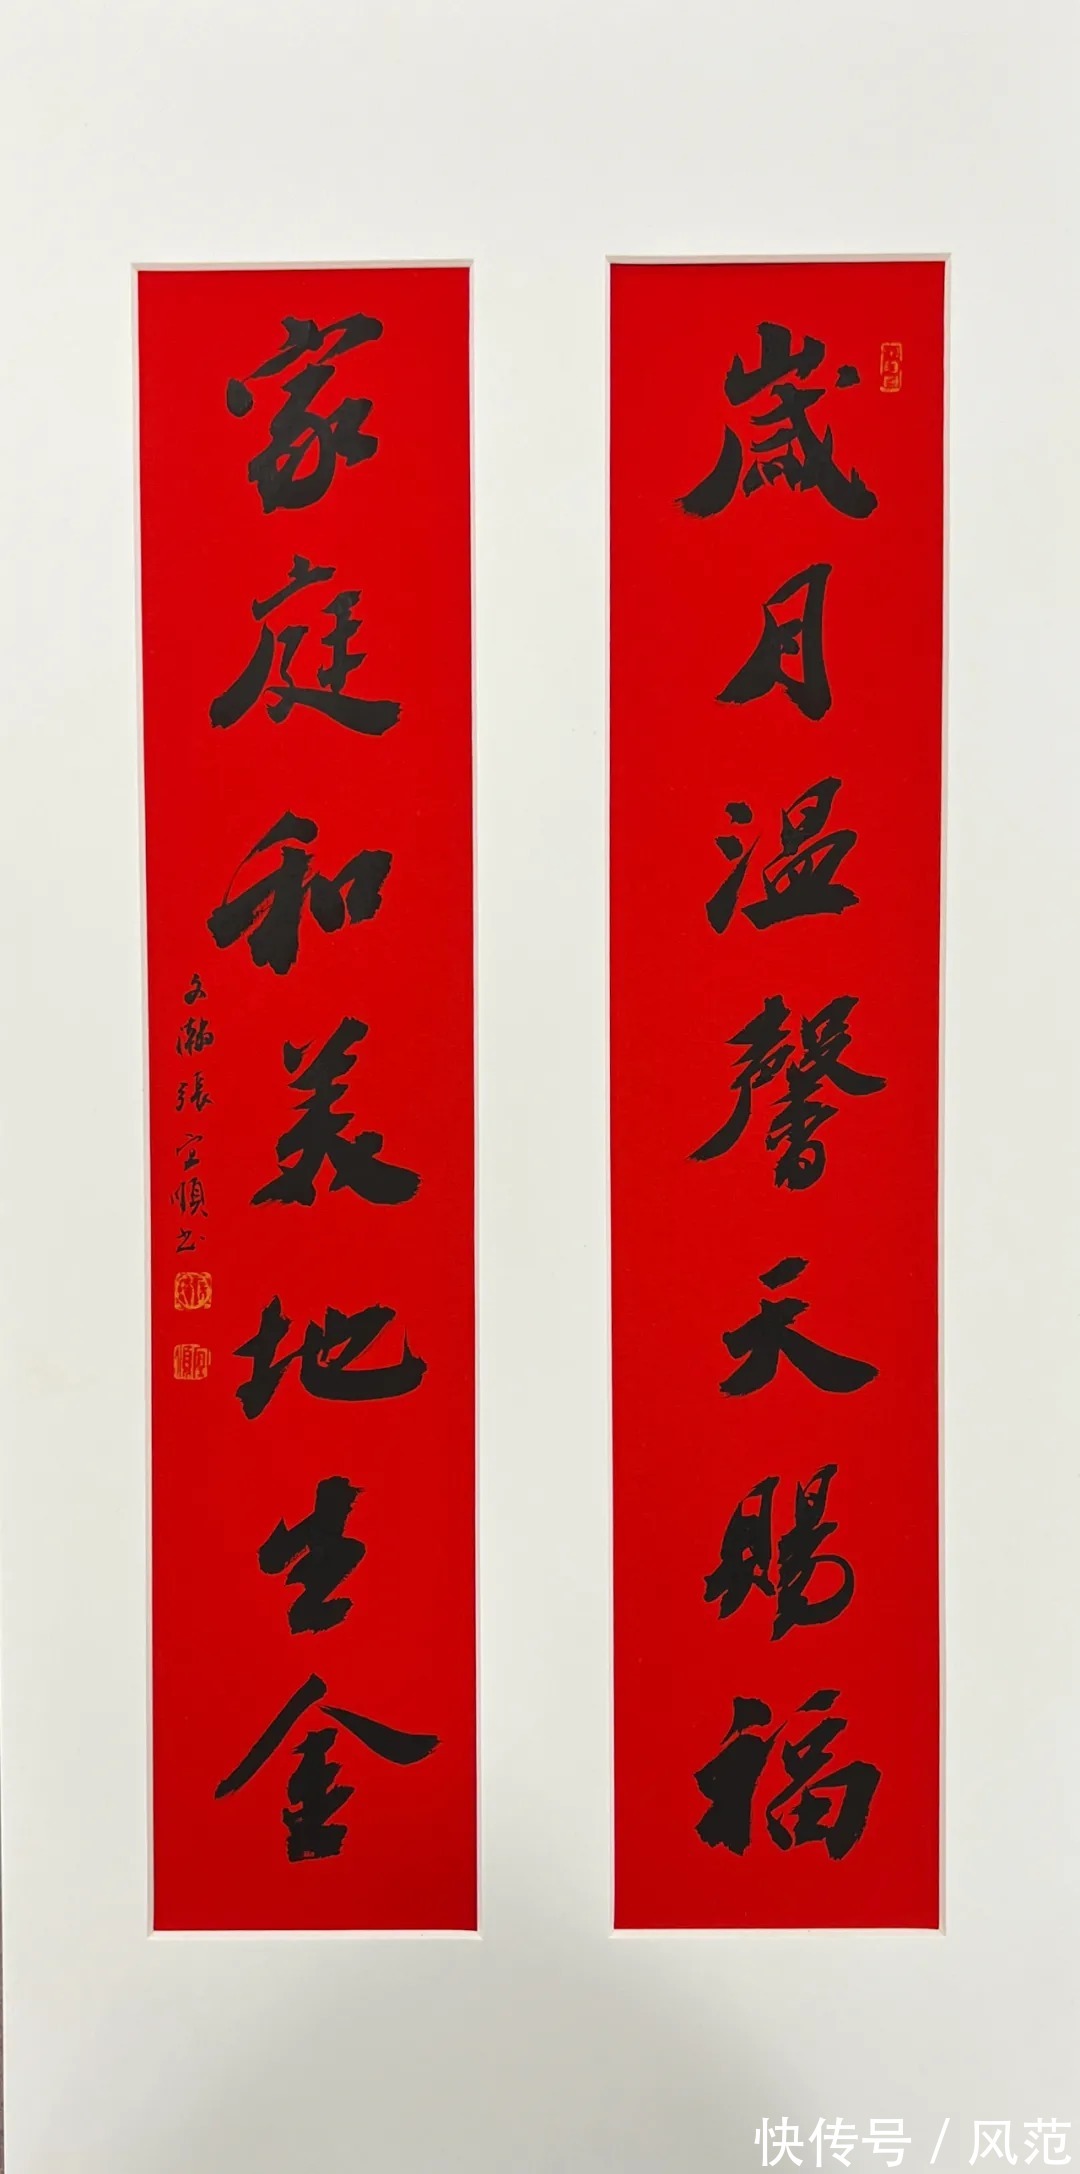 歲月温馨天赐福
家庭和美地生金
文瀚張宜順书
快传号 / 风范